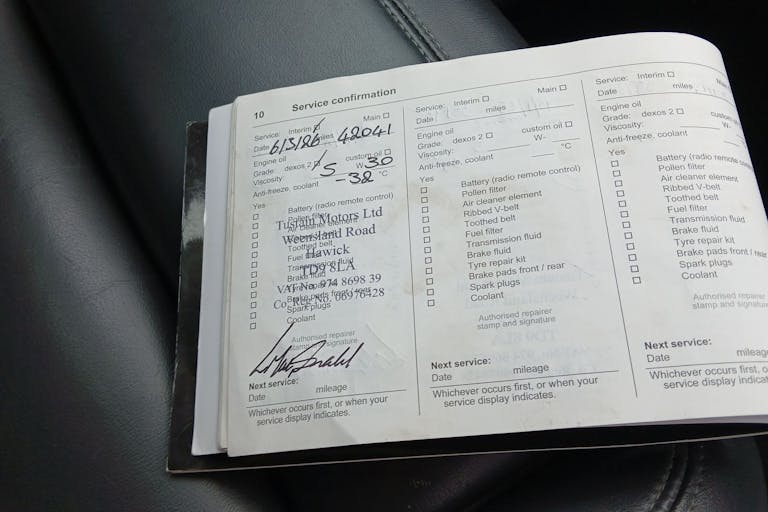 10 Service confirmation
Service: Interim Main
Date 6/3/26 miles 42041
Engine oil
Grade: dexos 2 custom oil
Viscosity: 5 W- 30
Anti-freeze, coolant -38 °C
Yes
Battery (radio remote control)
Pollen filter
Air cleaner element
Toothed belt
Fuel filter
Transmission fluid
Brake fluid
Brake pads front / rear
Spark plugs
Coolant
Weensland Road
Hawick
TD9 8LA
VAT No. 974 8698 39
Co. Reg No. 06976428
Authorised repairer
stamp and signature
Next service:
Date mileage
Whichever occurs first, or when your
service display indicates.
Service: Interim Main
Date miles
Engine oil
Grade: dexos 2 custom oil
Viscosity: W-
Anti-freeze, coolant °C
Yes
Battery (radio remote control)
Pollen filter
Air cleaner element
Ribbed V-belt
Toothed belt
Fuel filter
Transmission fluid
Brake fluid
Tyre repair kit
Brake pads front / rear
Spark plugs
Coolant
Authorised repairer
stamp and signature
Next service:
Date mileage
Whichever occurs first, or when your
service display indicates.
Service: Interim
Date miles
Engine oil
Grade: dexos 2
Viscosity: W-
Anti-freeze, coolant
Yes
Battery (radio remote
Pollen filter
Air cleaner element
Ribbed V-belt
Toothed belt
Fuel filter
Transmission fluid
Brake fluid
Tyre repair kit
Brake pads front / rear
Spark plugs
Coolant
Authorised repairer
stamp and signature
Next service:
Date mileage
Whichever occurs first,
service display